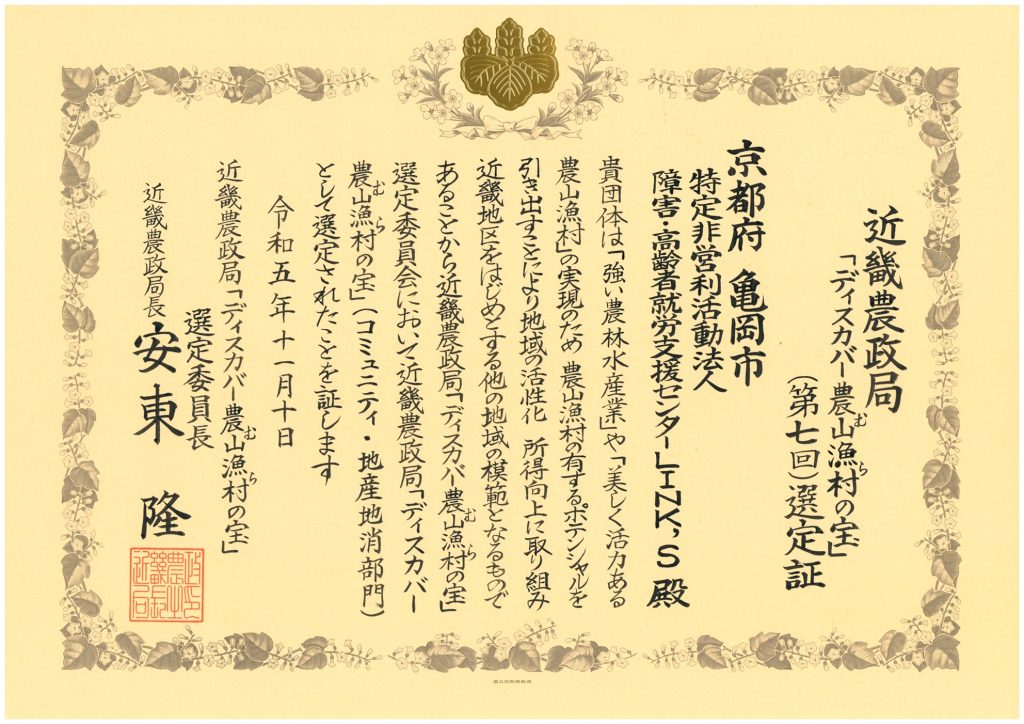 近畿農政局
「ディスカバー農山漁村の宝」
むら
（第七回）選定証
京都府 亀岡市
特定非営利活動法人
障害・高齢者就労支援センターLINK,S 殿
貴団体は「強い農林水産業」や「美しく活力ある
農山漁村」の実現のため 農山漁村の有するポテンシャルを
引き出すことにより地域の活性化 所得向上に取り組み
近畿地区をはじめとする他の地域の模範となるもので
あることから近畿農政局「ディスカバー農山漁村の宝」
むら
選定委員会において近畿農政局「ディスカバー
農山漁村の宝」（コミュニティ・地産地消部門）
むら
として選定されたことを証します
令和五年十一月十日
近畿農政局「ディスカバー農山漁村の宝」
むら
選定委員長
近畿農政局長 安東 隆